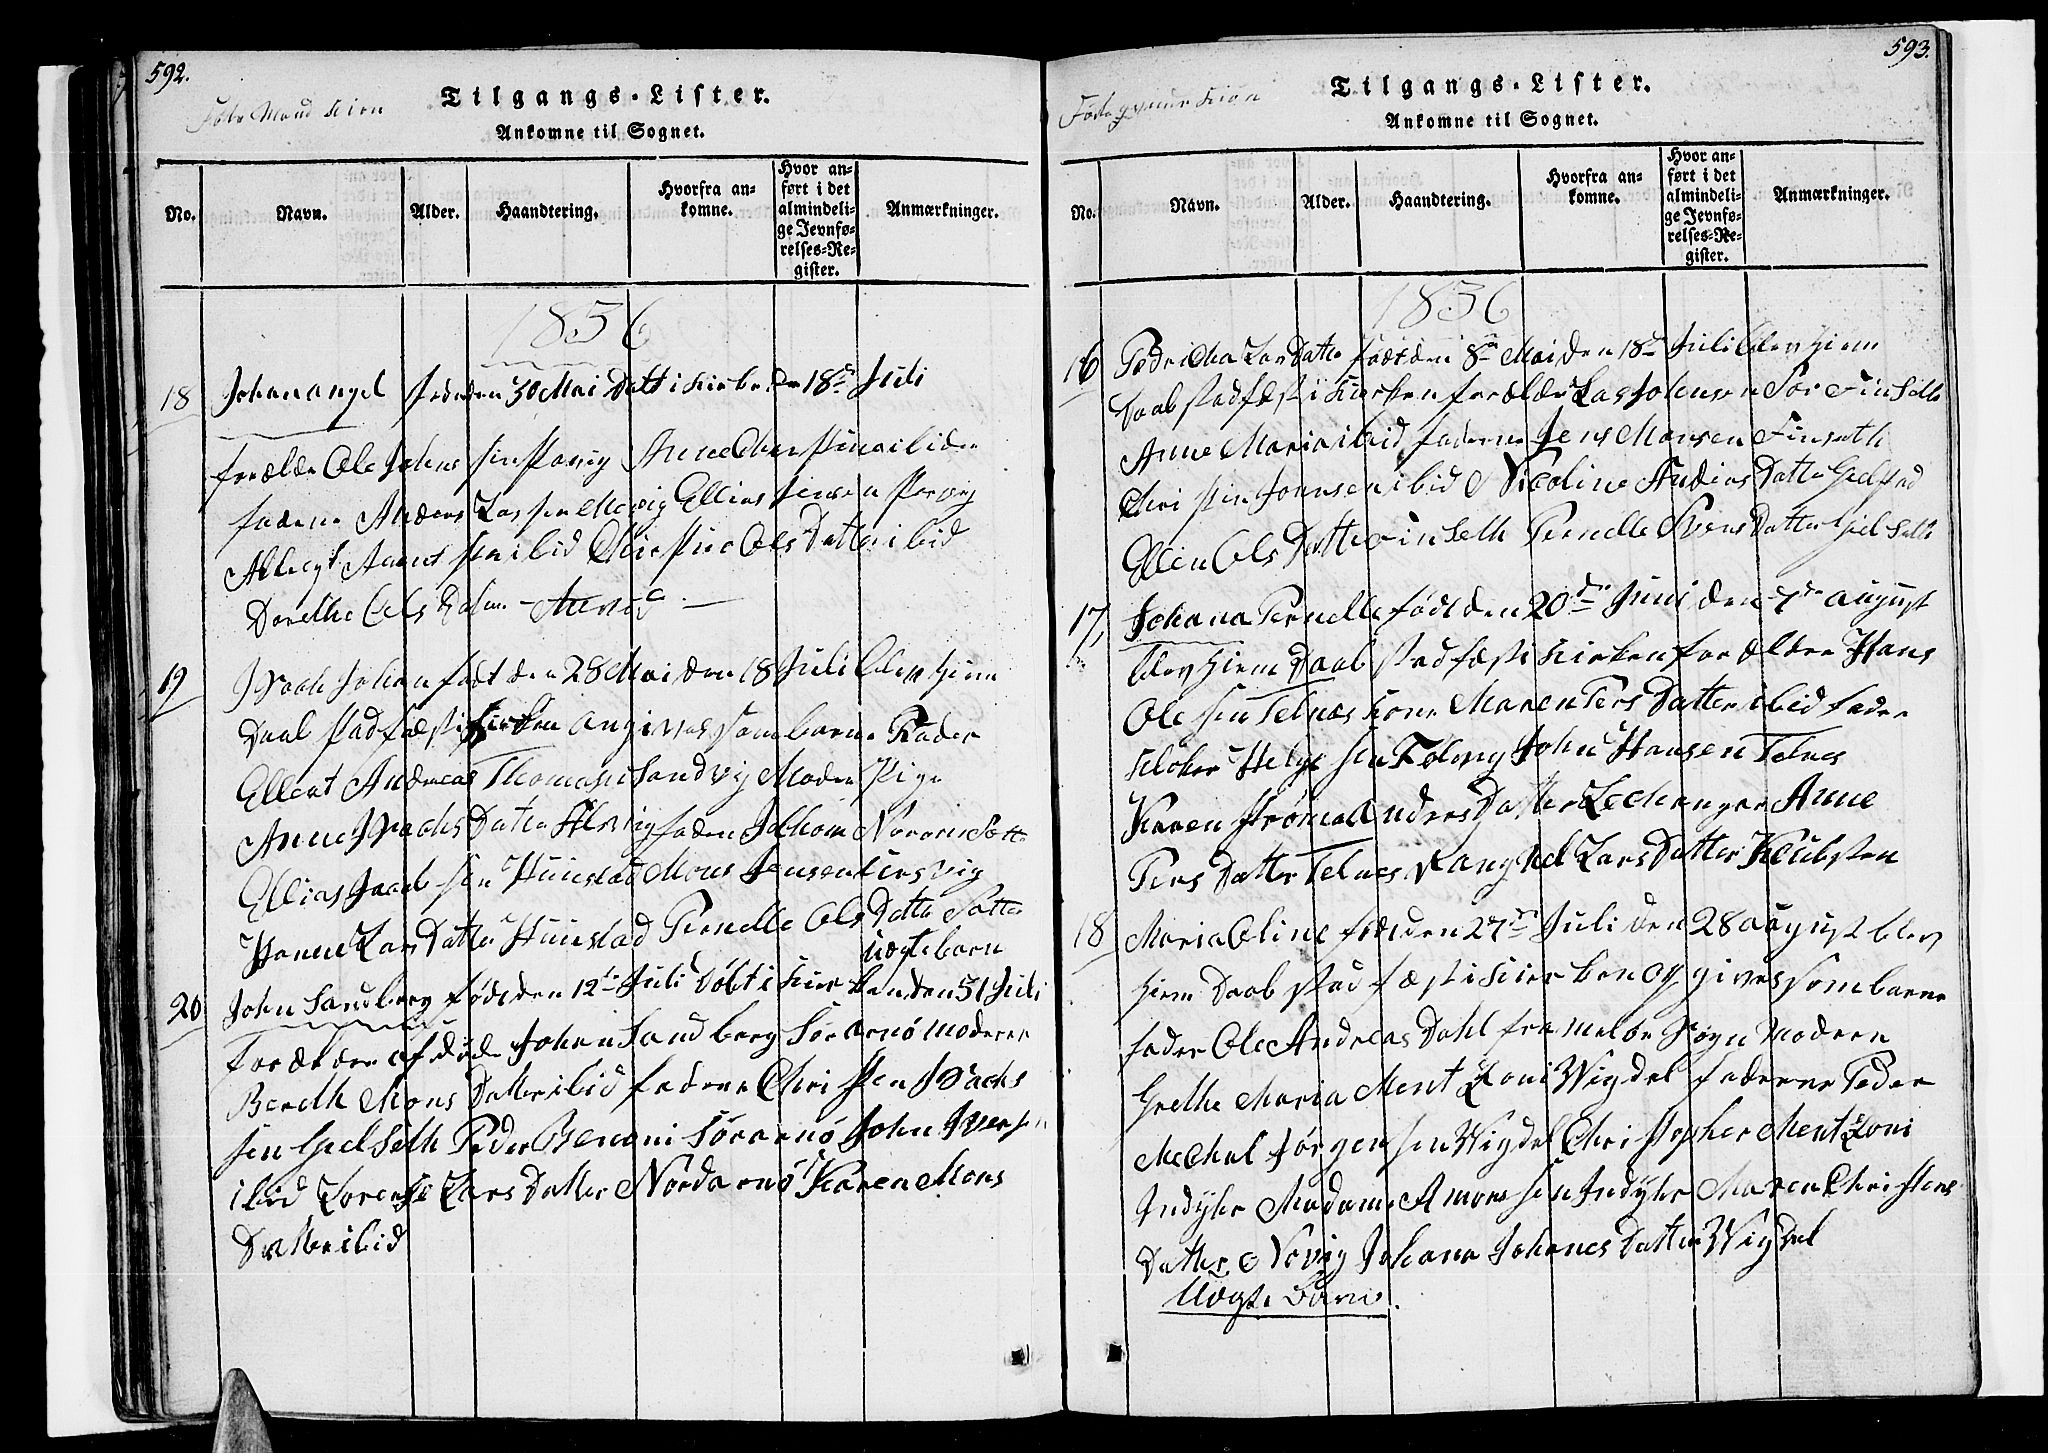 592.
Føde Mand Kiøn
Tilgangs-Lister.
Ankomne til Sognet.
No.
Navn.
Alder.
Haandtering.
Hvorfra an-
komne.
Hvor an-
ført i det
almindeli-
ge Jevnfø-
relses-Re-
gister.
Anmærkninger.
1836
18 Johan angel fødd den 30 Mai Døtt i Kirke den 18de Juli
foreldre Ole Johns sin Anne Cher ibiden
fadene Anders Las sen Ellias Jensen
ibid Ols Datter ibid
Dorethe Ols
19 Isaak Johan født den 28 Mai den 18 Juli blev hiem
Daab stadfæst i Kirken angives som barne Fader
Ellert Andreas Thomasen Sandvig Moder Pige
Anne Isachs Datter fadere
Ellias Jacob sen Hunstad Mons Jensen
Hanne Lars Datter Hunstad Pernelle Ols Datter
uægte barn
20 John Sandberg født den 12te Juli Døbt i Kirken den 31 Juli
Forældre afdøde Johan Sandberg Sørarnø moderen
Bereth Mons Datter ibid fadere Christen Isachs
sen Gielseth Peder Benoni Sørarnø John Iversen
ibid Lorense Lars Datter Nordarnø Karen Mons
Datter ibid
593.
Føde qvinne Kiøn
Tilgangs-Lister.
Ankomne til Sognet.
No.
Navn.
Alder.
Haandtering.
Hvorfra an-
komne.
Hvor an-
ført i det
almindeli-
ge Jevnfø-
relses-Re-
gister.
Anmærkninger.
1836
16 Fedricha Lars Datter født den 8de Mai den 18de Juli blev hiem
daab stadfæst i Kierken forældre Las Johnsen Sør Finseth
Anne Maria ibid faderne Jens Monsen Finseth
Christen Jonnsen ibid Nicoline Anders Datter
Ellen Ols Datter Finseth Pernelle Svens Datter Gielseth
17 Johana Pernelle født den 20de Juni den 7de august
blev hiem Daab stadfæst i Kirken forældre Hans
Ole sen Telnæs kone Maren Pers Datter ibid fader
Klokker Helge sen John Hansen Telnes
Karen Anders Datter Anne
Pers Datter Telnes Ranghel Lars Datter
18 Maria Oline født den 27de Juli den 28 august blev
hiem Daab stadfæst i Kierken og gives som barne
fader Ole Andreas Dahl fra Melbø Sogn Moderen
Grethe Maria Mentzoni Wigdel faderne Peder
Mechal Jørgensen Wigdel Christopher Mentzoni
Indyhr Madam Amonsen Indyhr Maren Christens
Datter Novig Johana Johanes Datter Wigdel
Uægte Barn.